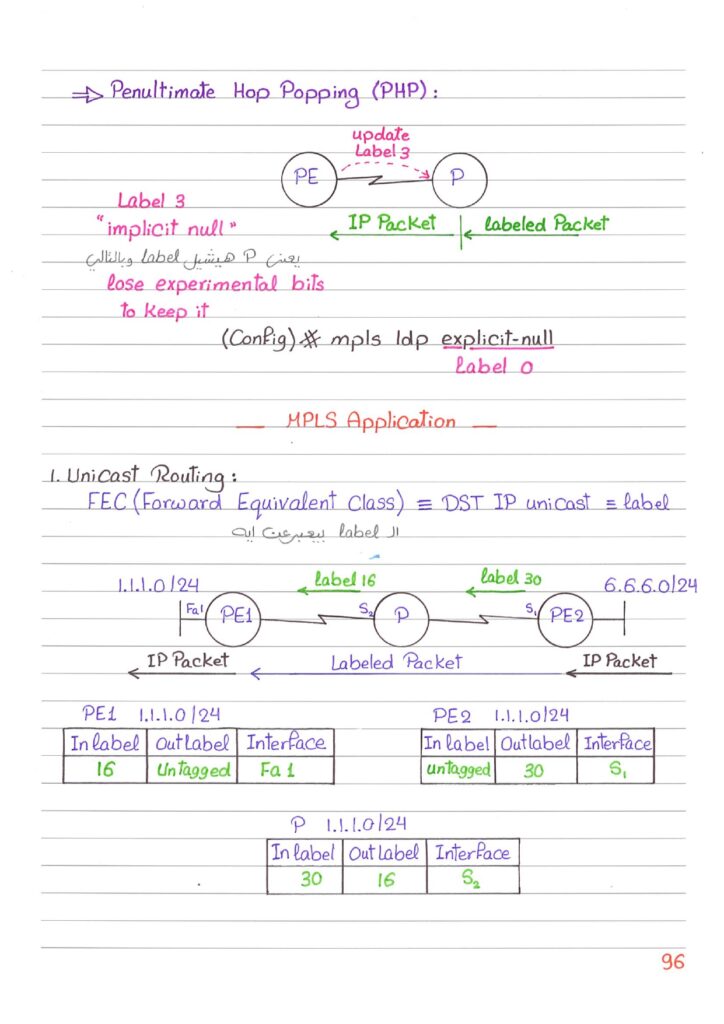 ⇒ Penultimate Hop Popping (PHP) :
update
Label 3
PE P
Label 3
IP Packet labeled Packet
"implicit null"
يعنى P هيشيل label وبالتالي
lose experimental bits
to keep it
(Config)# mpls ldp explicit-null
label 0
MPLS Application
1. Unicast Routing :
FEC (Forward Equivalent Class) ≡ DST IP unicast ≡ label
ال label بيعبر عن ايه
label 16 label 30
1.1.1.0/24 6.6.6.0/24
Fa1 PE1 S2 P S1 PE2
IP Packet Labeled Packet IP Packet
PE1 1.1.1.0/24 PE2 1.1.1.0/24
In label Out label Interface In label Out label Interface
16 Untagged Fa 1 untagged 30 S1
P 1.1.1.0/24
In label Out label Interface
30 16 S2
96